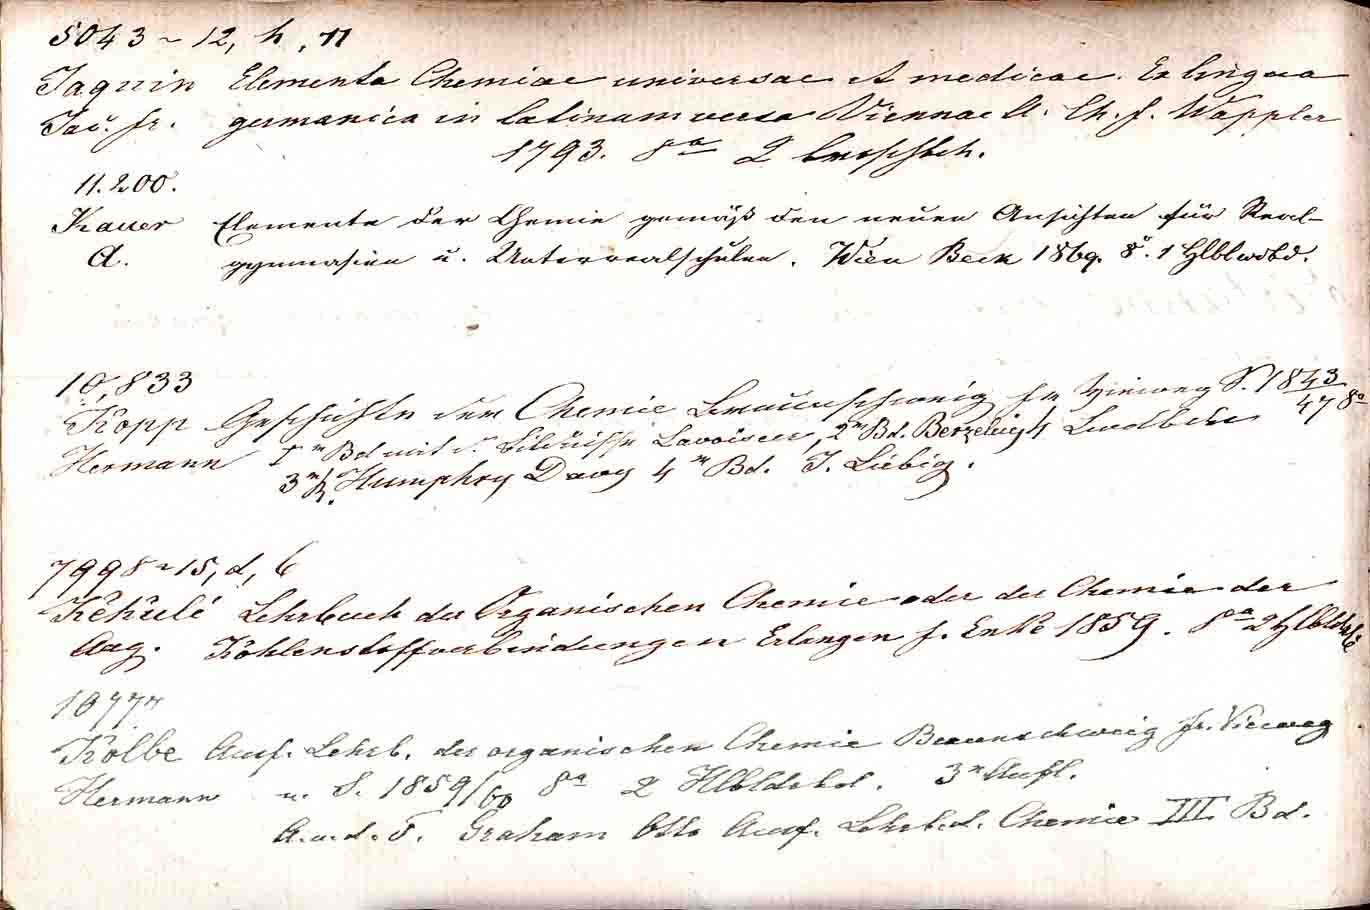 5043 ~ 12, h, 11
Jaquin Elementa Chemiae universae et medicae. Ex lingua
Jac. fr. germanica in latinam versa Viennae A. Ch. f. Wappler
1793. 8a 2 broschbch.
11.200.
Kauer Elemente der Chemie gemäß den neuen Ansichten für Real-
A. gymnasien u. Unterrealschulen. Wien Beck 1869. 8°. 1 Hlblwdbd.
10,833
Kopp Geschichte der Chemie Braunschweig fr Vieweg S. 1843/47 8a
Hermann 1r Bd mit d. Bildnisse Lavoisier, 2r Bd. Berzelius
3r Humphry Davy 4r Bd. J. Liebig.
7998 ~ 15, d, 6
Kekulé Lehrbuch der Organischen Chemie oder der Chemie der
Aug. Kohlenstoffverbindungen Erlangen f. Enke 1859. 8a 2
1077
Kolbe Ausf. Lehrb. der organischen Chemie Braunschweig fr. Vieweg
Hermann u. S. 1859/60 8a 2 Hlbldrbd. 3r Aufl.
A. u. d. T. Graham Otto Ausf. Lehrb. d. Chemie III. Bd.